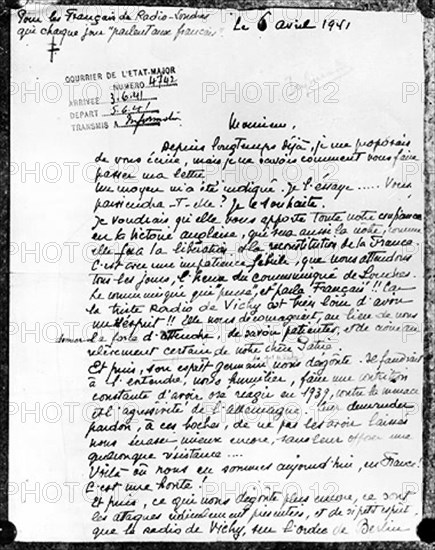 Pour les Français de Radio-Londres
qui chaque jour "parlent aux français"
Le 6 avril 1941
COURRIER DE L'ETAT-MAJOR
NUMERO 4742
ARRIVEE 3.6.41
DEPART 5.6.41
TRANSMIS A Information
Monsieur,
Depuis longtemps déjà, je me proposais
de vous écrire, mais je ne savais comment vous faire
passer ma lettre.
Un moyen m'a été indiqué. Je l'essaye ..... Vous
parviendra-t-elle? Je le souhaite.
Je voudrais qu'elle vous apporte toute notre confiance
en la Victoire anglaise, qui sera aussi la nôtre, comme
elle fera la libération et la reconstitution de la France.
C'est avec une impatience fébrile, que nous attendons
tous les jours, l'heure du communiqué de Londres.
Le communiqué qui "pense" et parle Français!! Car
la triste radio de Vichy est très loin d'avoir
un esprit!! Elle nous décourageait, au lieu de nous
donner la force d'attendre, de savoir patienter, et de croire au
relèvement certain de notre chère Patrie.
Et puis, son esprit germain nous dégoûte. Il faudrait
à l'entendre, nous humilier, faire une contrition
constante d'avoir osé réagir en 1939, contre la menace
et l'agressivité de l'allemagne. Leur demander
pardon, à ces boches, de ne pas les avoir laissés
nous écraser mieux encore, sans leur offrir une
quelconque résistance....
Voilà où nous en sommes aujourd'hui, en France!
C'est une honte!
Et puis, ce qui nous dégoûte plus encore, ce sont
les attaques ridiculement présentées, et de si petit esprit
que la radio de Vichy, sur l'ordre de Berlin